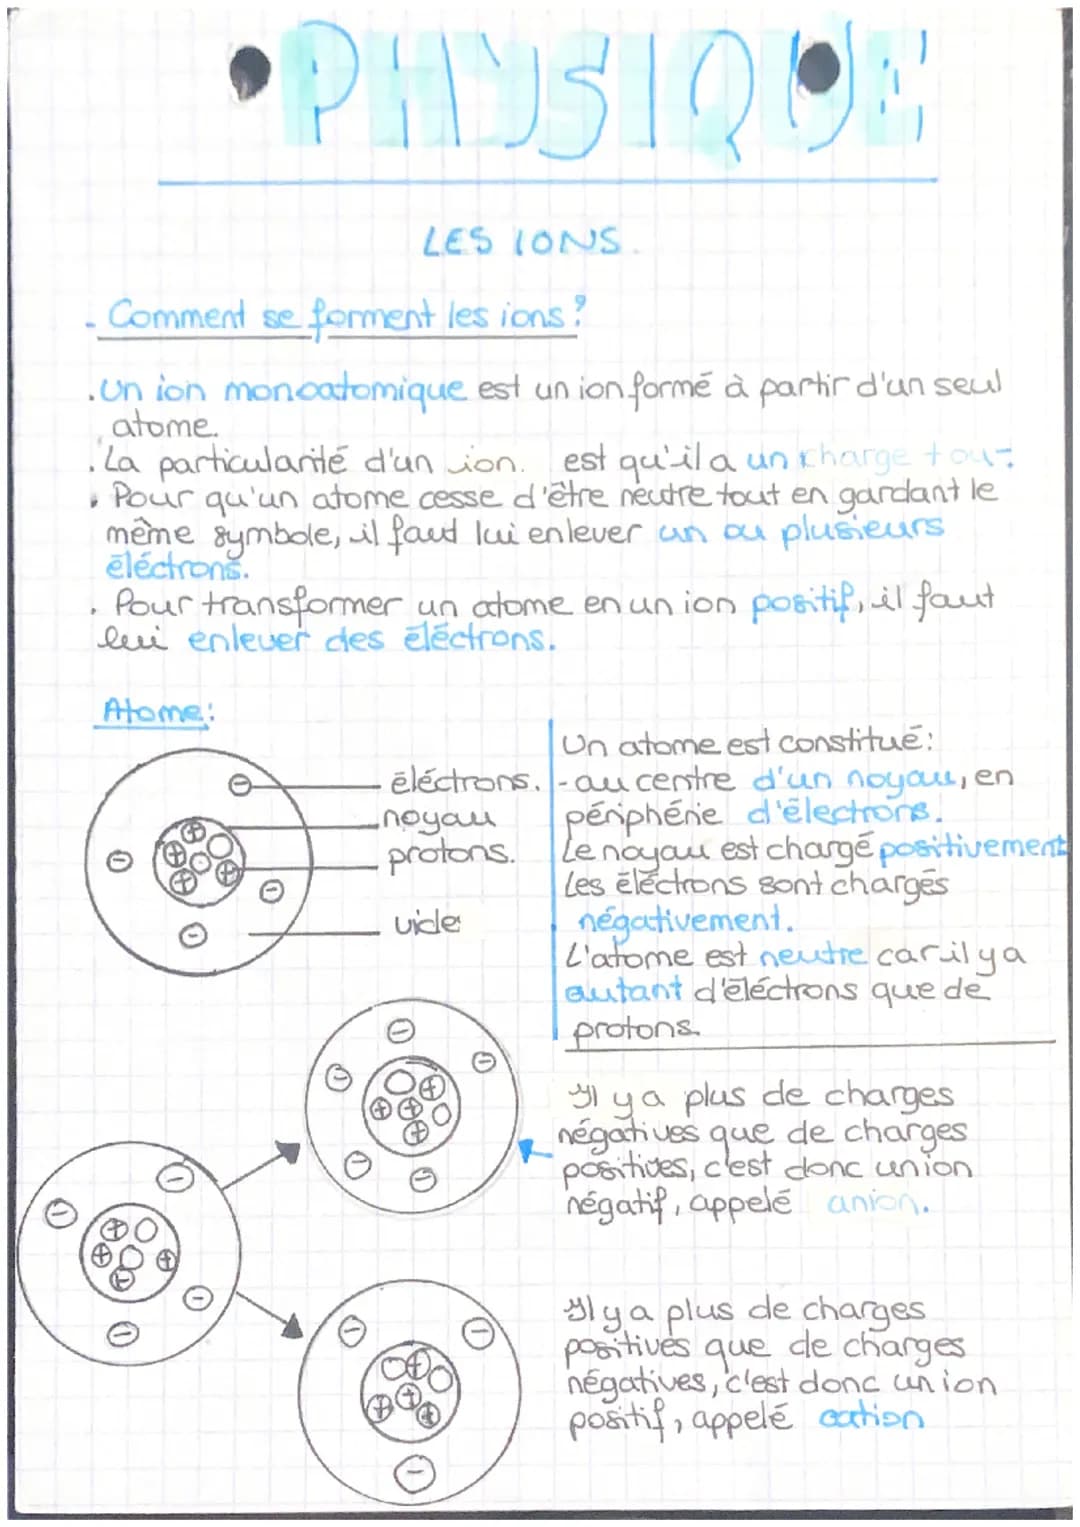 PHYSIQUE
LES IONS.
- Comment se forment les ions?
. Un ion monoatomique est un ion formé à partir d'un seul
atome.
. La particularité d'un ion. est qu'il a un charge tou-
. Pour qu'un atome cesse d'être neutre tout en gardant le
même symbole, il faut lui enlever un ou plusieurs
éléctrons.
. Pour transformer un atome en un ion positif, il faut
lui enlever des éléctrons.
Atome:
éléctrons.
noyau
protons.
vide
Un atome est constitué:
- au centre d'un noyau, en
périphérie d'électrons.
Le noyau est chargé positivement
Les éléctrons sont chargés
négativement.
L'atome est neutre car il y a
autant d'éléctrons que de
protons.
Il y a plus de charges
négatives que de charges
positives, c'est donc un ion
négatif, appelé anion.
Il y a plus de charges
positives que de charges
négatives, c'est donc un ion
positif, appelé cation